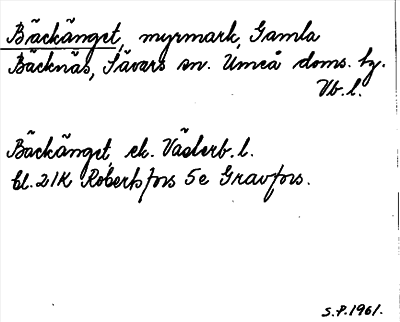 Bäckänget, myrmark, Gamla
Bäcknäs, Sävars sn. Umeå doms. hg.
Vb. l.
Bäckänget, ek. Västerb. l.
bl. 21K Robertsfors 5e Gravfors.
S.P. 1961.